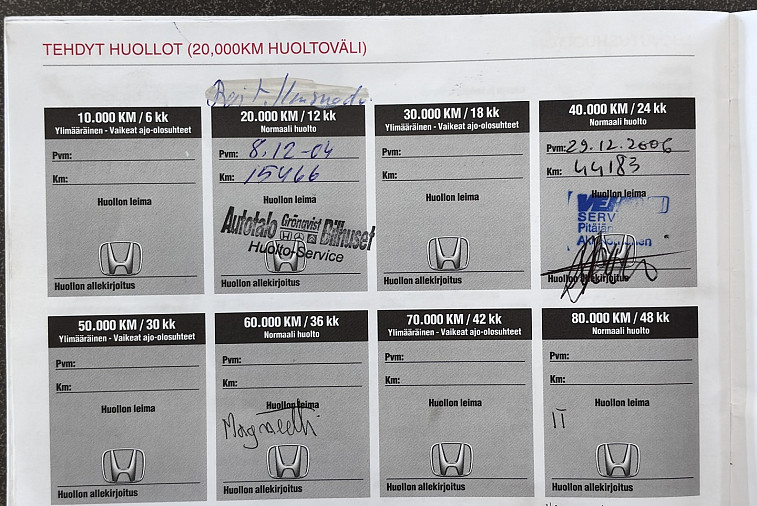 TEHDYT HUOLLOT (20,000KM HUOLTOVÄLI)
10.000 KM / 6 kk
Ylimääräinen - Vaikeat ajo-olosuhteet
Pvm:
Km:
Huollon leima
Huollon allekirjoitus
20.000 KM / 12 kk
Normaali huolto
Pvm: 8.12-04
Km: 15466
Huollon leima
Autotalo Grönqvist Bilhuset
Huolto-Service
Huollon allekirjoitus
30.000 KM / 18 kk
Ylimääräinen - Vaikeat ajo-olosuhteet
Pvm:
Km:
Huollon leima
Huollon allekirjoitus
40.000 KM / 24 kk
Normaali huolto
Pvm: 29.12.2006
Km: 44183
Huollon leima
SERV
Pitäjän
Huollon allekirjoitus
50.000 KM / 30 kk
Ylimääräinen - Vaikeat ajo-olosuhteet
Pvm:
Km:
Huollon leima
Huollon allekirjoitus
60.000 KM / 36 kk
Normaali huolto
Pvm:
Km:
Huollon leima
Huollon allekirjoitus
70.000 KM / 42 kk
Ylimääräinen - Vaikeat ajo-olosuhteet
Pvm:
Km:
Huollon leima
Huollon allekirjoitus
80.000 KM / 48 kk
Normaali huolto
Pvm:
Km:
Huollon leima
11
Huollon allekirjoitus